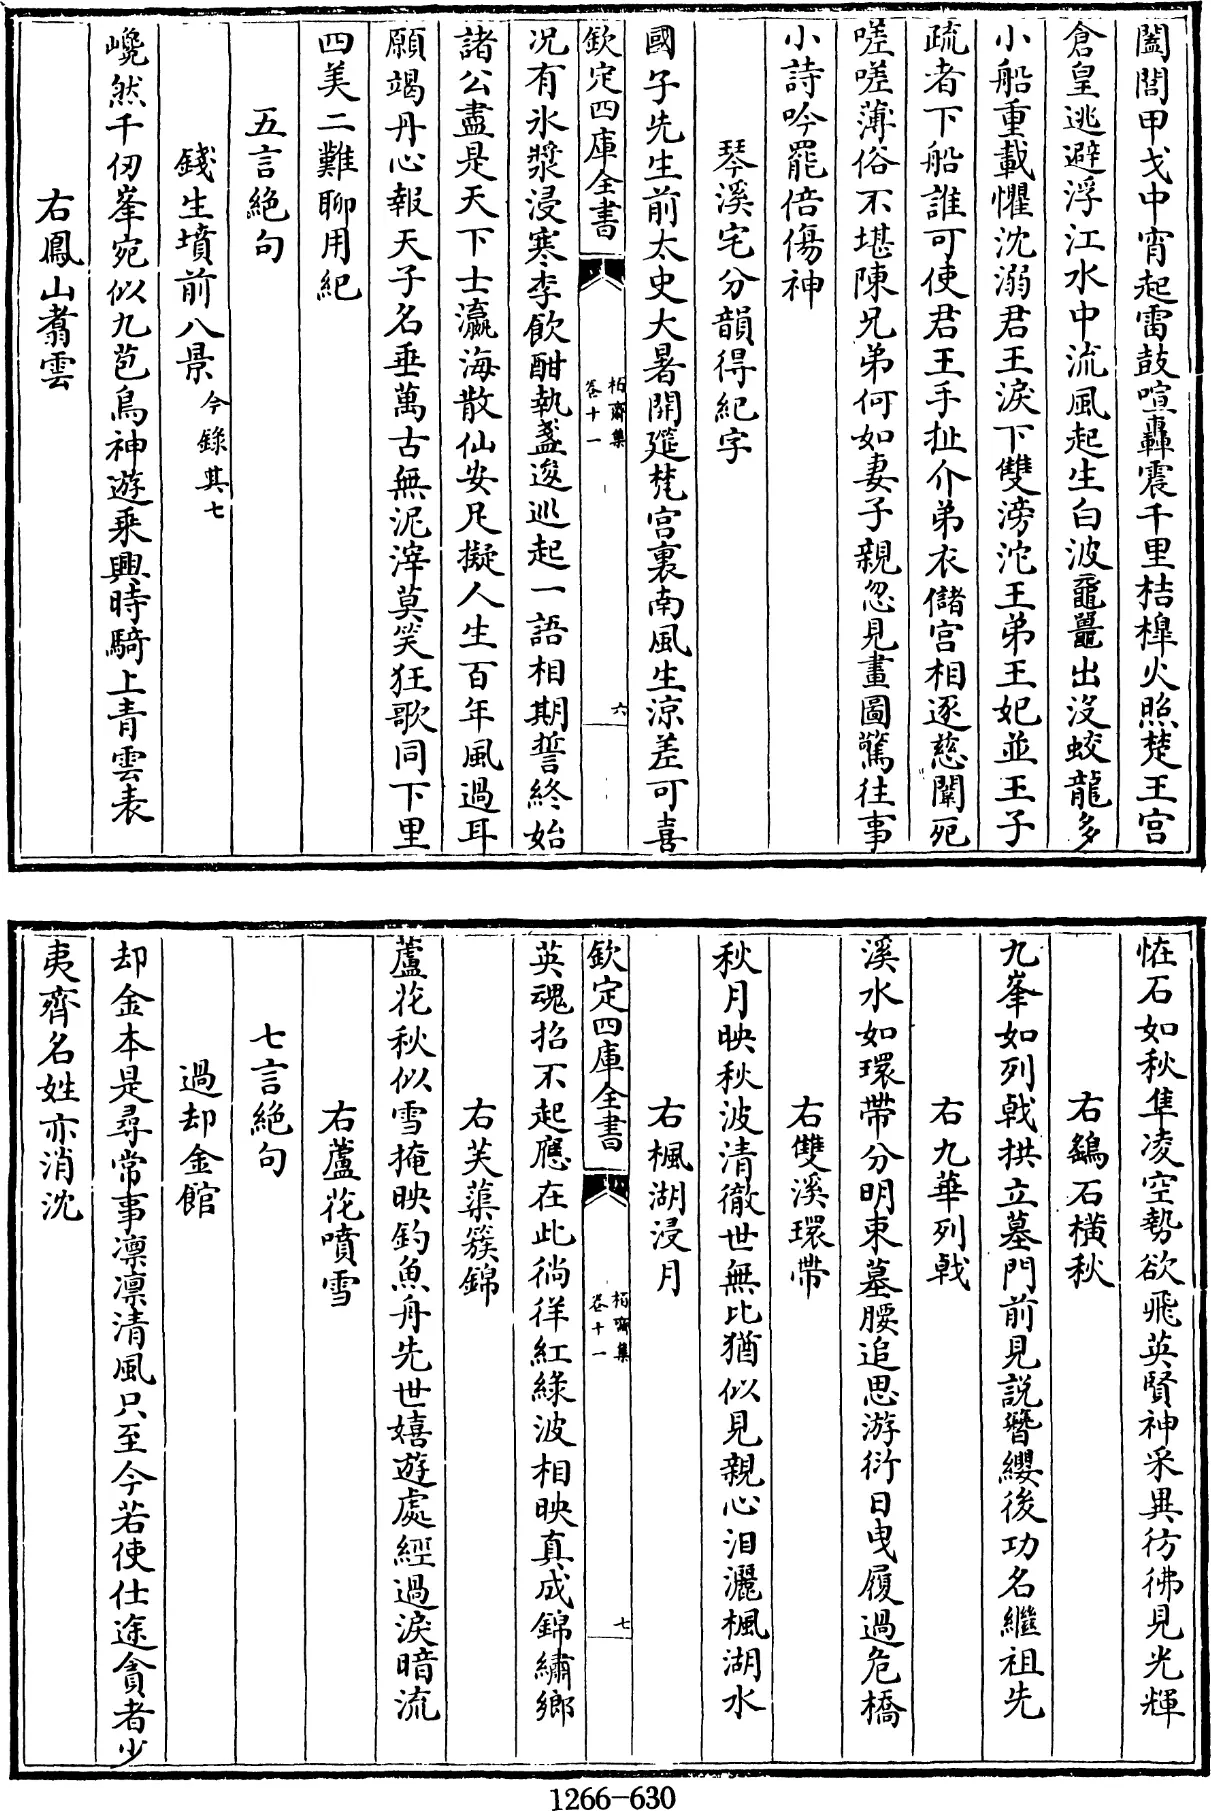 闔閭甲戈中宵起雷鼓喧轟震千里桔槹火照楚王宫
倉皇逃避浮江水中流風起生白波黿鼉出没蛟龍多
小船重載懼沈溺君王淚下雙滂沱王弟王妃並王子
疏者下船誰可使君王手扯介弟衣儲宫相逐慈闈死
嗟嗟薄俗不堪陳兄弟何如妻子親忽見畫圖驚往事
小詩吟罷倍傷神
琴溪宅分韻得紀字
國子先生前太史大暑開筵梵宫裏南風生涼差可喜
欽定四庫全書
栢齋集
卷十一
六
况有氷漿浸寒李飲酣執盞逡巡起一語相期誓終始
諸公盡是天下士瀛海散仙安足擬人生百年風過耳
願竭丹心報天子名垂萬古無泥滓莫笑狂歌同下里
四美二難聊用紀
五言絶句
錢生墳前八景今錄其七
巉然千仞峯宛似九苞鳥神遊乘興時騎上青雲表
右鳳山翥雲
恠石如秋隼凌空勢欲飛英賢神采異彷彿見光輝
右鷂石横秋
九峯如列戟拱立墓門前見説簪纓後功名繼祖先
右九華列戟
溪水如環帶分明束墓腰追思游衍日曳履過危橋
右雙溪環帶
秋月映秋波清徹世無比猶似見親心泪灑楓湖水
右楓湖浸月
欽定四庫全書
栢齋集
卷十一
七
英魂招不起應在此徜徉紅緑波相映真成錦繡鄉
右芙蕖簇錦
蘆花秋似雪掩映釣魚舟先世嬉遊處經過淚暗流
右蘆花噴雪
七言絶句
過却金館
却金本是尋常事凛凛清風只至今若使仕途貪者少
夷齊名姓亦消沈
1266-630